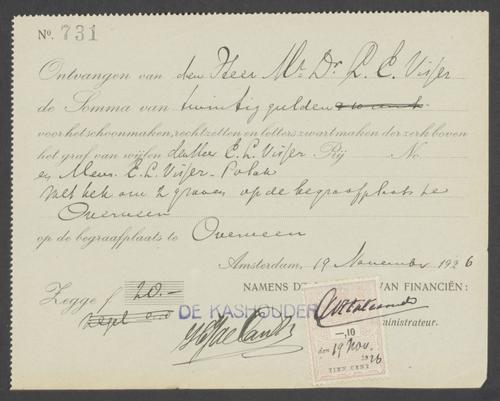 No. 731
Ontvangen van den Heer Mr. Dr. L. E. Visser
de Somma van twintig gulden
voor het schoonmaken, rechtzetten en letters zwart maken der zerk boven
het graf van wijlen den Heer E. L. Visser Rij No.
en Mevr. E. L. Visser-Polak
met hek om 2 graven op de begraafplaats te
Overveen
op de begraafplaats te Overveen
Amsterdam, 19 November 1926
Zegge f 20.—
NAMENS DE VAN FINANCIËN:
DE KASHOUDER
ministrateur.
—,10
den 19 Nov. 1926
TIEN CENT